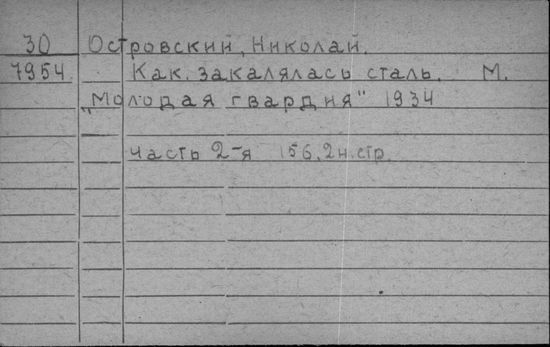 30 Островский, Николай.
7954. Как закалялась сталь. М.
„Молодая гвардия" 1934
часть 2-я 156, 2 н. стр.